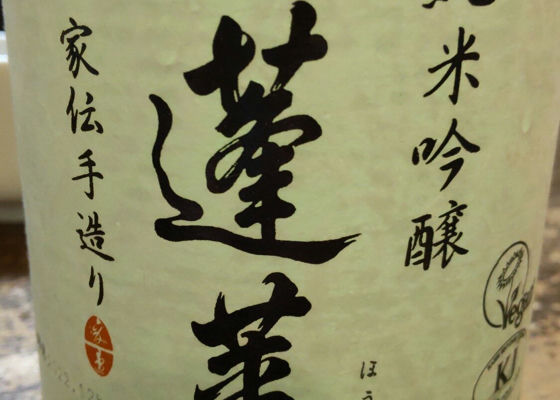 純米吟醸
蓬莱
ほう
家伝手造り
Vegan
KJ